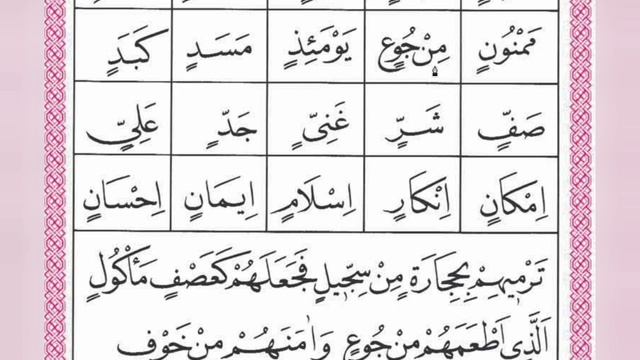 مَمْنُونٍ مِنْ جُوعٍ يَوْمَئِذٍ مَسَدٍ كَبَدٍ
صَفٍّ شَرٍّ غَنِىٍّ جَدٍّ عَلِىٍّ
اِمْكَانٍ اِنْكَارٍ اِسْلَامٍ اِيمَانٍ اِحْسَانٍ
تَرْمِيهِمْ بِحِجَارَةٍ مِنْ سِجِّيلٍ فَجَعَلَهُمْ كَعَصْفٍ مَأْكُولٍ
اَلَّذِى اَطْعَمَهُمْ مِنْ جُوعٍ وَاٰمَنَهُمْ مِنْ خَوْفٍ